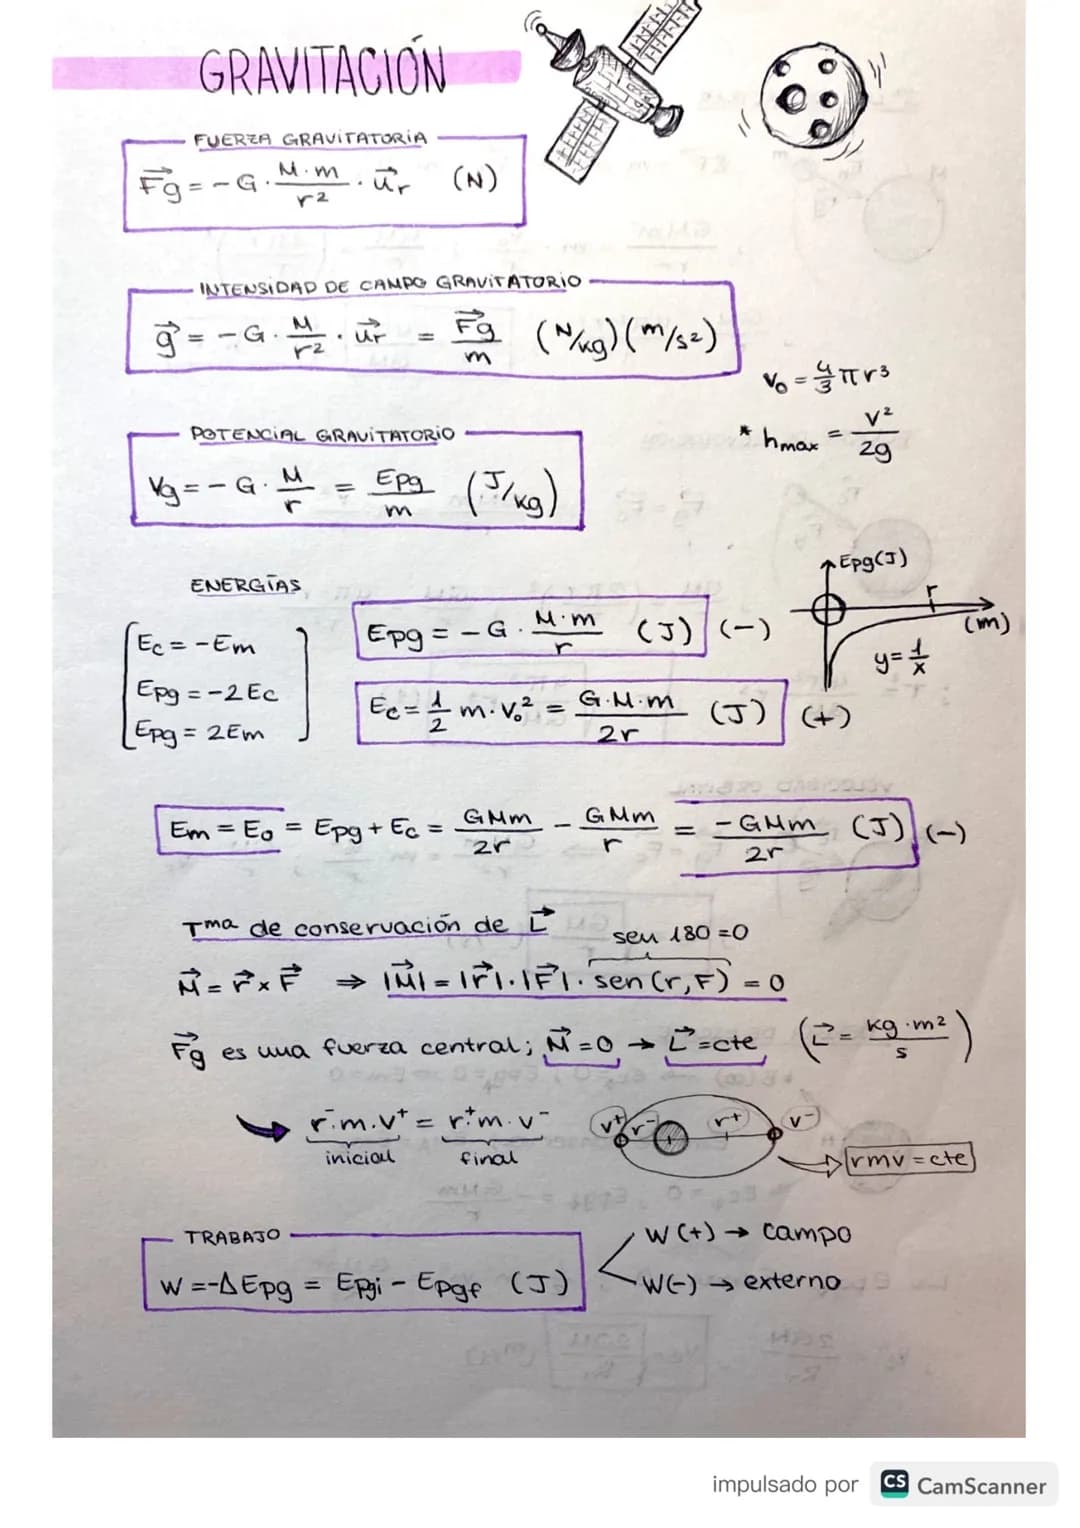 GRAVITACIÓN
FUERZA GRAVITATORIA
F⃗g = - G · M·m / r² · u⃗r (N)
INTENSIDAD DE CAMPO GRAVITATORIO
g⃗ = - G · M / r² · u⃗r = F⃗g / m (N/kg) (m/s²)
V₀ = 4/3 π r³
* hmax = v² / 2g
POTENCIAL GRAVITATORIO
Vg = - G · M / r = Epg / m (J/kg)
ENERGÍAS
Ec = - Em
Epg = -2 Ec
Epg = 2Em
Epg = - G · M·m / r (J) (-)
Ec = 1/2 m · v₀² = G·M·m / 2r (J) (+)
Epg(J)
r
(m)
y = 1/x
Em = E₀ = Epg + Ec = GMm / 2r - GMm / r = - GMm / 2r (J) (-)
Tma de conservación de L⃗
sen 180 = 0
M⃗ = r⃗ x F⃗ ⇒ |M⃗| = |r⃗| · |F⃗| · sen (r, F) = 0
F⃗g es una fuerza central; M⃗ = 0 → L⃗ = cte (L⃗ = kg · m² / s)
r⁻ · m · v⁺ = r⁺ m · v⁻
inicial final
v⁺ r⁻ r⁺ v⁻
rmv = cte
TRABAJO
W = -Δ Epg = Epgi - Epgf (J)
W (+) → campo
W(-) → externo
impulsado por CS CamScanner